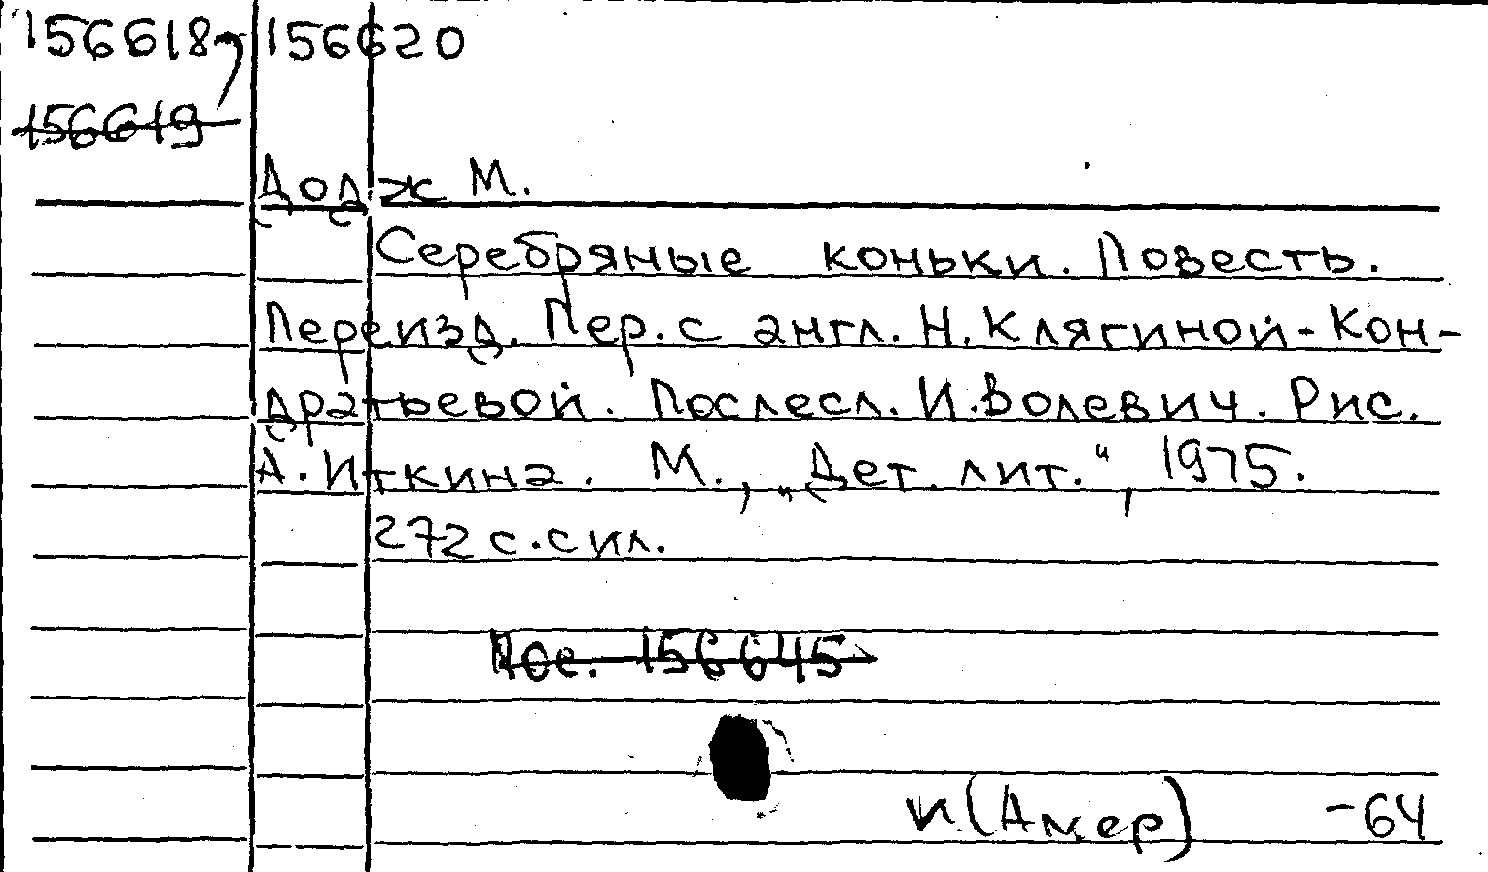 156618, 156620
156619
Додж М.
Серебряные коньки. Повесть.
Переизд. Пер. с англ. Н. Клягиной-Кон-
дратьевой. Послесл. И. Волевич. Рис.
А. Иткина. М., „Дет. лит.“, 1975.
272 с. с ил.
156645
И(Амер) -64